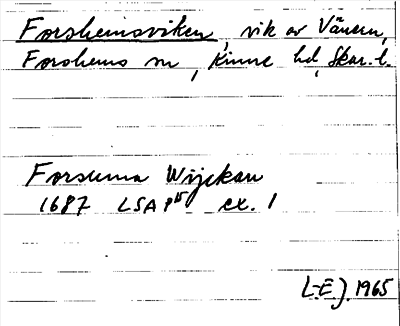 Forshemsviken, vik av Vänern,
Forshems sn, Kinne hd, Skar. l.
Forssema Wijckan
1687 LSA P15 ex. 1
L-E J. 1965